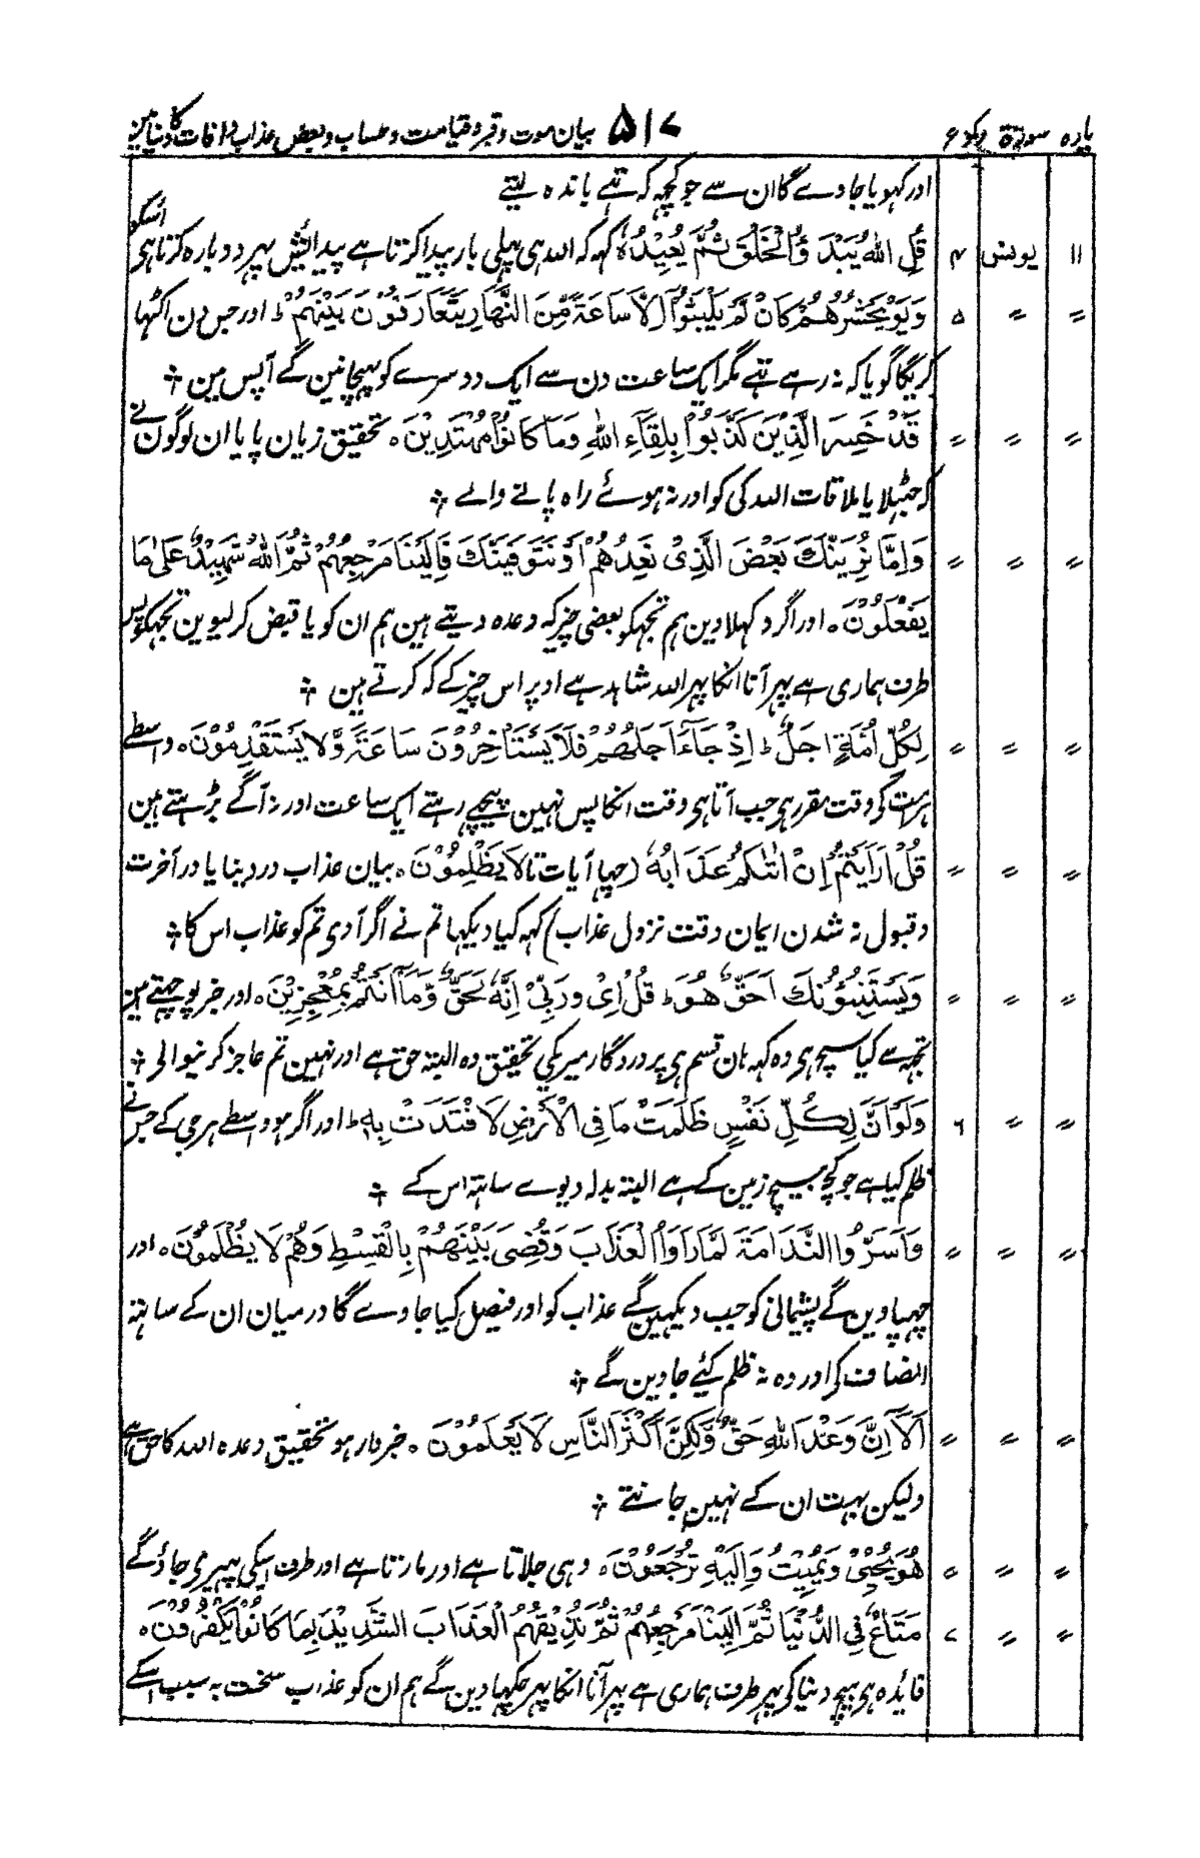 پارہ سورۃ رکوع ۵۱۷ بیان موت و قبر و قیامت و حساب و بعض عذاب و آفات کا دنیا مین
اور کہویا جاوے گا ان سے جو کچہہ کہ تہے باندہ لیتے
۱۱ یونس ۴ قُلِ اللّٰهُ یَبْدَؤُا الْخَلْقَ ثُمَّ یُعِیْدُهٗ کہہ کہ اللہ ہی پہلی بار پیدا کرتا ہے پیدائش پہر دوبارہ کرتا ہی اسکو
〃 〃 ۵ وَیَوْمَ یَحْشُرُهُمْ کَاَنْ لَّمْ یَلْبَثُوْٓا اِلَّا سَاعَةً مِّنَ النَّهَارِ یَتَعَارَفُوْنَ بَیْنَهُمْ ط اور جس دن اکٹہا
کریگا گویا کہ نہ رہے تہے مگر ایک ساعت دن سے ایک دوسرے کو پہچانین گے آپس مین ؞
〃 〃 〃 قَدْ خَسِرَ الَّذِیْنَ کَذَّبُوْا بِلِقَآءِ اللّٰهِ وَمَا کَانُوْا مُهْتَدِیْنَ ہ تحقیق زیان پایا ان لوگون نے
کہ جہٹلایا ملاقات اللہ کی کو اور نہ ہوئے راہ پانے والے ؞
〃 〃 〃 وَاِمَّا نُرِیَنَّكَ بَعْضَ الَّذِیْ نَعِدُهُمْ اَوْ نَتَوَفَّیَنَّكَ فَاِلَیْنَا مَرْجِعُهُمْ ثُمَّ اللّٰهُ شَهِیْدٌ عَلٰی مَا
یَفْعَلُوْنَ ہ اور اگر دکہلا دین ہم تجہکو بعضی چیز کہ وعدہ دیتے ہین ہم ان کو یا قبض کر لیوین تجہکو پس
طرف ہماری ہے پہر آنا انکا پہر اللہ شاہد ہے اوپر اس چیز کے کہ کرتے ہین ؞
〃 〃 〃 لِکُلِّ اُمَّةٍ اَجَلٌ ط اِذَا جَآءَ اَجَلُهُمْ فَلَا یَسْتَاْخِرُوْنَ سَاعَةً وَّلَا یَسْتَقْدِمُوْنَ ہ واسطے
ہر امت کو وقت مقرر ہی جب آتا ہی وقت انکا پس نہین پیچہے رہتے ایک ساعت اور نہ آگے بڑہتے ہین
〃 〃 〃 قُلْ اَرَاَیْتُمْ اِنْ اَتٰىکُمْ عَذَابُهٗ (چہہ آیات تا لَا یُظْلَمُوْنَ ہ بیان عذاب در دنیا یا در آخرت
و قبول نہ شدن ایمان وقت نزول عذاب) کہہ کیا دیکہا تم نے اگر آوی تم کو عذاب اس کا ؞
〃 〃 〃 وَیَسْتَنْبِئُوْنَكَ اَحَقٌّ هُوَ ط قُلْ اِیْ وَرَبِّیْٓ اِنَّهٗ لَحَقٌّ وَّمَآ اَنْتُمْ بِمُعْجِزِیْنَ ہ اور خبر پوچہتے ہین
تجہہ سے کیا سچ ہی وہ کہہ ہان قسم ہی پروردگار میرے کی تحقیق وہ البتہ حق ہے اور نہین تم عاجز کرنیوالی ؞
〃 〃 ۶ وَلَوْ اَنَّ لِکُلِّ نَفْسٍ ظَلَمَتْ مَا فِی الْاَرْضِ لَافْتَدَتْ بِهٖ ط اور اگر ہو واسطے ہر جی کے جس نے
ظلم کیا ہے جو کچہ بیچ زمین کے ہے البتہ بدلہ دیوے ساتہہ اس کے ؞
〃 〃 〃 وَاَسَرُّوا النَّدَامَةَ لَمَّا رَاَوُا الْعَذَابَ وَقُضِیَ بَیْنَهُمْ بِالْقِسْطِ وَهُمْ لَا یُظْلَمُوْنَ ہ اور
چہپاوین گے پشیمانی کو جب دیکہین گے عذاب کو اور فیصل کیا جاوے گا درمیان ان کے ساتہہ
انصاف کے اور وہ نہ ظلم کئیے جاوین گے ؞
〃 〃 〃 اَلَآ اِنَّ وَعْدَ اللّٰهِ حَقٌّ وَّلٰکِنَّ اَکْثَرَ النَّاسِ لَا یَعْلَمُوْنَ ہ خبردار ہو تحقیق وعدہ اللہ کا حق ہے
ولیکن بہت ان کے نہین جانتے ؞
〃 〃 〃 هُوَ یُحْیٖ وَیُمِیْتُ وَاِلَیْهِ تُرْجَعُوْنَ ہ وہی جلاتا ہے اور مارتا ہے اور طرف اسیکی پہیرے جاؤ گے
〃 〃 ۷ مَتَاعٌ فِی الدُّنْیَا ثُمَّ اِلَیْنَا مَرْجِعُهُمْ ثُمَّ نُذِیْقُهُمُ الْعَذَابَ الشَّدِیْدَ بِمَا کَانُوْا یَکْفُرُوْنَ ہ
فائدہ ہی بیچ دنیا کے پہر طرف ہماری ہے پہر آنا انکا پہر چکہا دین گے ہم ان کو عذاب سخت بہ سبب اسکے